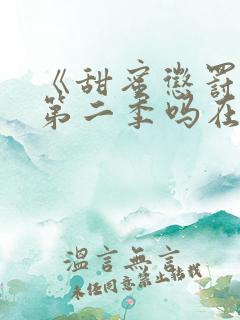 《甜蜜懲罰
第二季吗在
温言無言
未经同意禁止转载